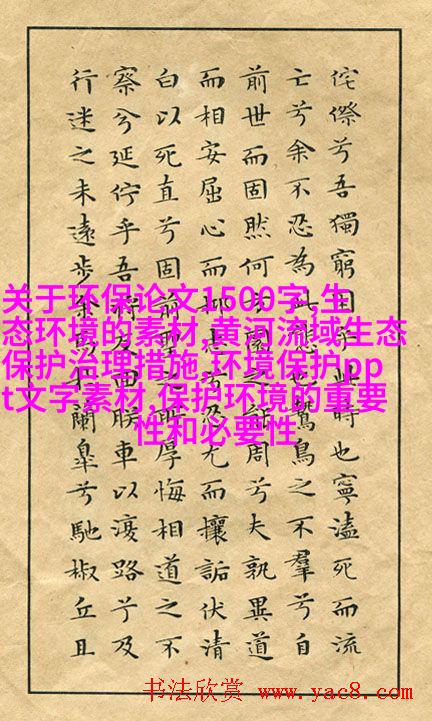 侘傺兮吾獨窮困乎此時也寧溘死而流
亡兮余不忍為此態也鷙鳥之不羣兮自
前世而固然何方圜之能周兮夫孰異道
而相安屈心而抑志兮忍尤而攘詬伏清
白以死直兮固前聖之所厚悔相道之不
察兮延佇乎吾將反回朕車以復路兮及
行迷之未遠步余馬於蘭皋兮馳椒丘且
关于环保论文1500字,生
态环境的素材,黄河流域生态
保护治理措施,环境保护pp
t文字素材,保护环境的重要
性和必要性
书法欣赏 www.yac8.com